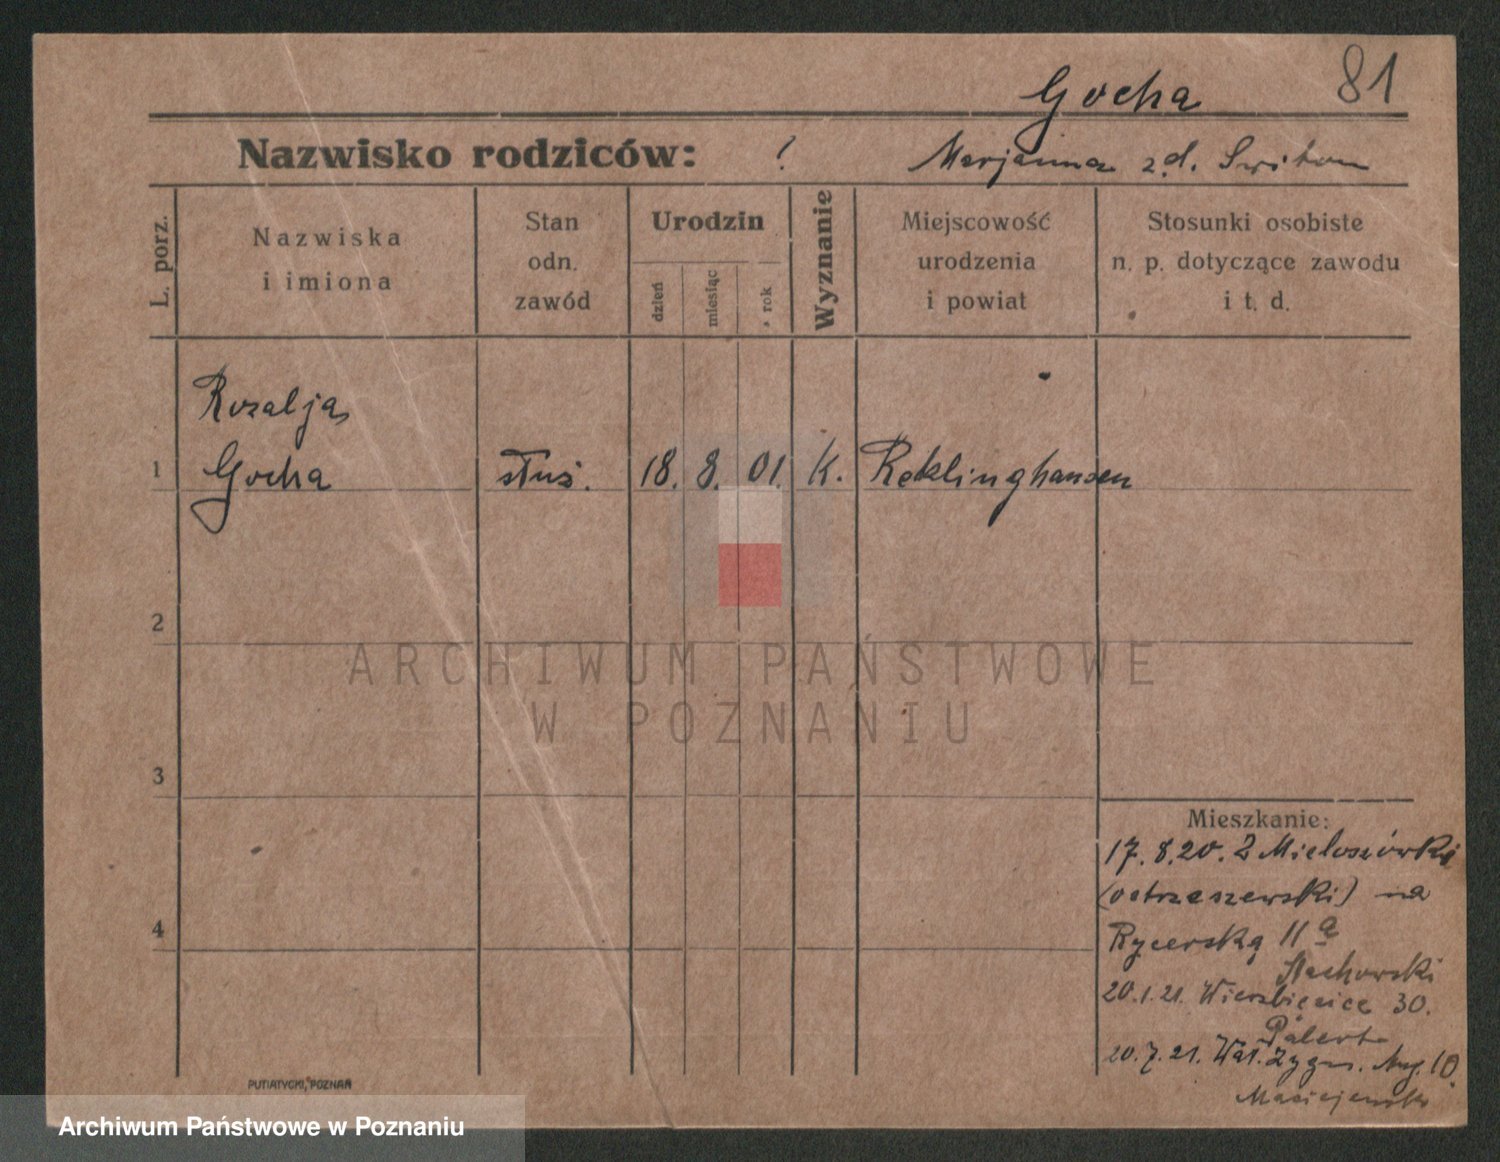 81
Gocha
Nazwisko rodziców: ? Marjanna z d. Switon
L. porz.
Nazwiska
i imiona
Stan
odn.
zawód
Urodzin
dzień
miesiąc
rok
Wyznanie
Miejscowość
urodzenia
i powiat
Stosunki osobiste
n. p. dotyczące zawodu
i t. d.
Rozalja
1 Gocha służ. 18. 8. 01. K. Reklinghausen
2
ARCHIWUM PAŃSTWOWE
W POZNANIU
3
Mieszkanie:
17.8.20. Z
(ostrzeszewski) na
4
Rycerską 11a
Stachowski
20.1.21. Wierzbięcice 30.
20.7.21. Wał. Zygm. Aug. 10.
Maciejewski
PUTIATYCKI, POZNAŃ
Archiwum Państwowe w Poznaniu